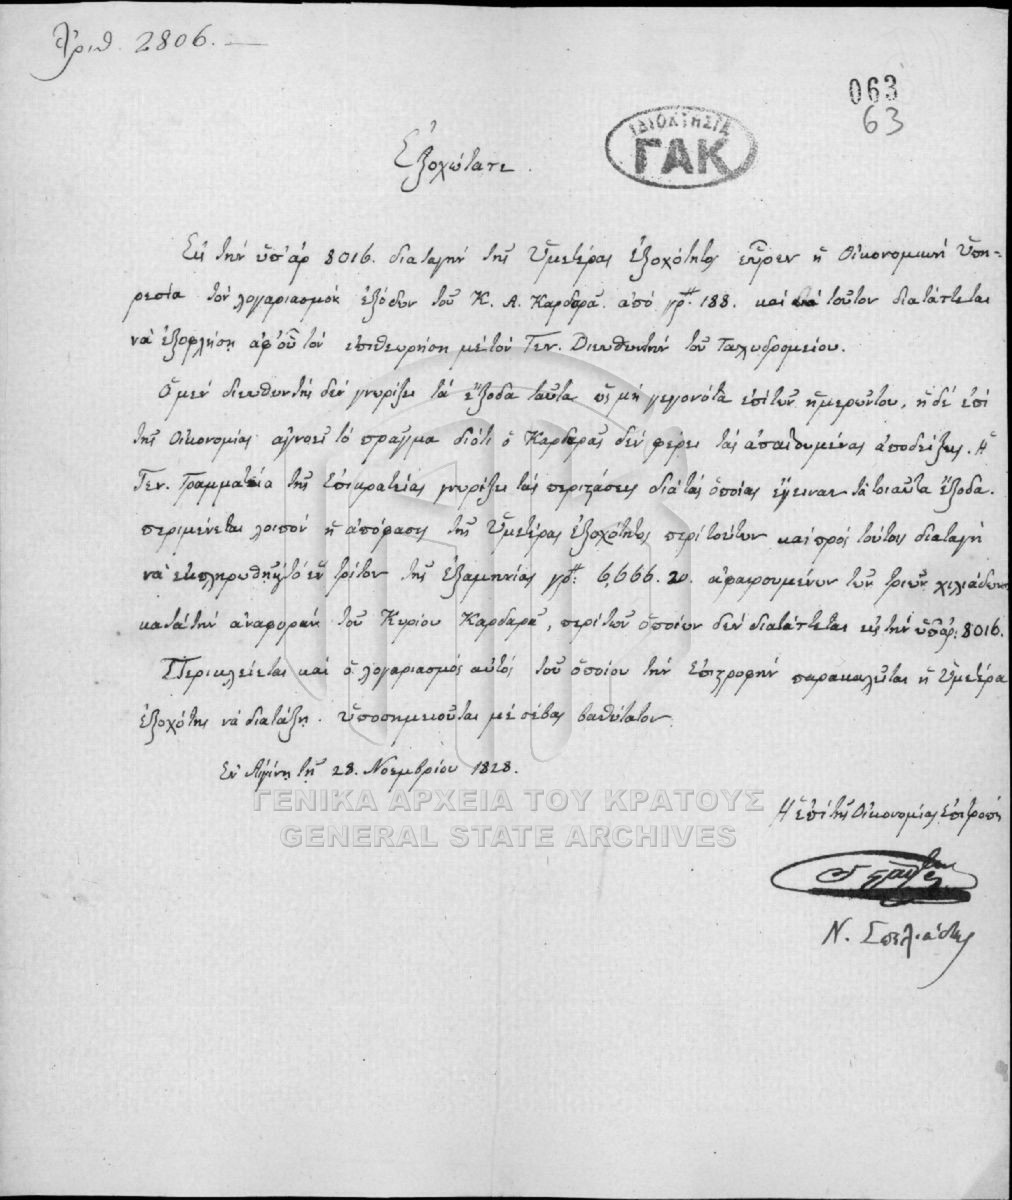 Ἀριθ. 2806.
063
63
ΙΔΙΟΚΤΗΣΙΑ
ΓΑΚ
Ἐξοχώτατε.
Εἰς τὴν ὑπ' ἀρ 8016. διαταγὴν τῆς Ὑμετέρας ἐξοχότητος εὗρεν ἡ Οἰκονομικὴ Ὑπη-
ρεσία τὸν λογαριασμὸν ἐξόδων τοῦ Κ. Α. Καρδαρᾶ ἀπὸ γρ: 188. καὶ τοῦτον διατάττεται
νὰ ἐξοφλήσῃ ἀφ' οὗ τὸν ἐπιθεωρήσῃ μὲ τὸν Γεν. Διευθυντὴν τοῦ Ταχυδρομείου.
Ὁ μὲν διευθυντὴς δὲν γνωρίζει τὰ ἔξοδα ταῦτα ὡς μὴ γεγονότα ἐπὶ τῶν ἡμερῶν του, ἡ δὲ ἐπὶ
τῆς Οἰκονομίας ἀγνοεῖ τὸ πρᾶγμα διότι ὁ Καρδαρᾶς δὲν φέρει τὰς ἀπαιτουμένας ἀποδείξεις. Ἡ
Γεν. Γραμματεία τῆς Ἐπικρατείας γνωρίζει τὰς περιστάσεις διὰ τὰς ὁποίας ἔγειναν τὰ τοιαῦτα ἔξοδα.
περιμένεται λοιπὸν ἡ ἀπόφασις τῆς Ὑμετέρας ἐξοχότητος περὶ τούτων καὶ πρὸς τούτοις διαταγὴ
νὰ ἐκπληρωθῇ τὸ ἓν τρίτον τῆς ἑξαμηνίας γρ: 6,666.20. ἀφαιρουμένων τῶν τριῶν χιλιάδων
κατὰ τὴν ἀναφορὰν τοῦ Κυρίου Καρδαρᾶ, περὶ τῶν ὁποίων δὲν διατάττεται εἰς τὴν ὑπ' ἀρ: 8016.
Περικλείεται καὶ ὁ λογαριασμὸς αὐτὸς τοῦ ὁποίου τὴν ἐπιστροφὴν παρακαλεῖται ἡ Ὑμετέρα
ἐξοχότης νὰ διατάξῃ. ὑποσημειοῦται μὲ σέβας βαθύτατον.
Ἐν Αἰγίνῃ τῇ 28. Νοεμβρίου 1828.
ΓΕΝΙΚΑ ΑΡΧΕΙΑ ΤΟΥ ΚΡΑΤΟΥΣ
GENERAL STATE ARCHIVES
Ἡ ἐπὶ τῆς Οἰκονομίας Ἐπιτροπή
Ν. Σπηλιάδης